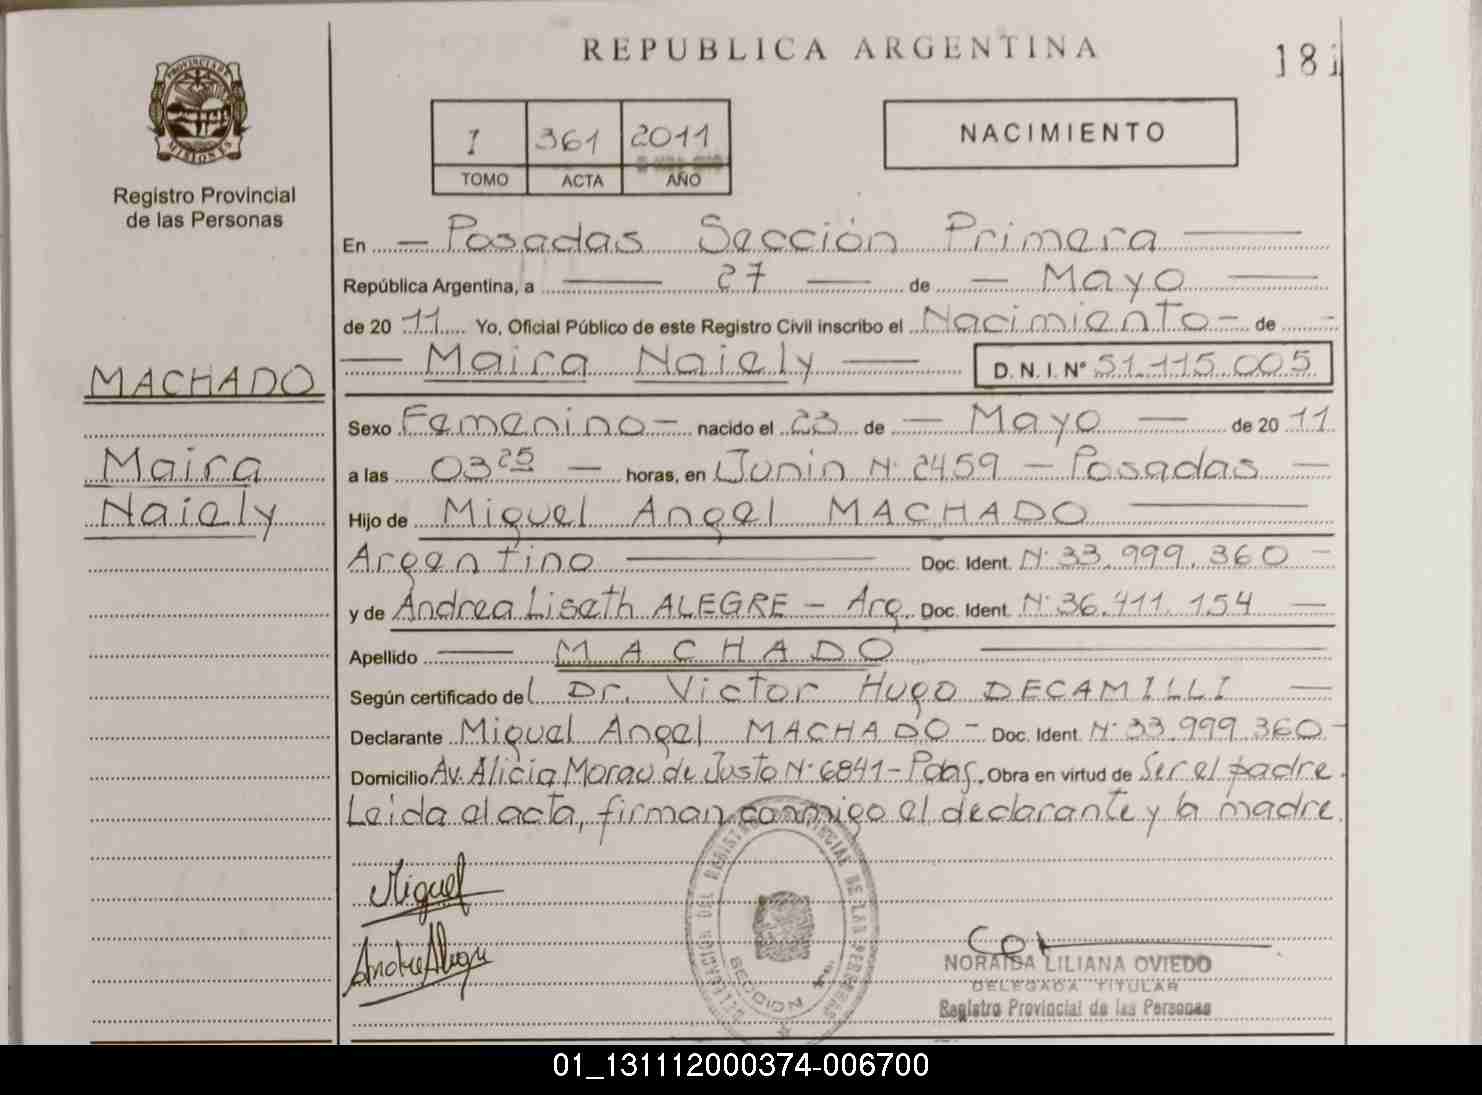 REPUBLICA ARGENTINA
181
PROVINCIA DE
MISIONES
Registro Provincial
de las Personas
I 361 2011
TOMO ACTA AÑO
NACIMIENTO
En — Posadas Sección Primera —
República Argentina, a — 27 — de — Mayo —
de 2011 Yo, Oficial Público de este Registro Civil inscribo el Nacimiento — de —
— Maira Naiely — D.N.I. Nº 51.115.005
MACHADO
Maira
Naiely
Sexo Femenino — nacido el 23 de — Mayo — de 2011
a las 03 25 — horas, en Junin Nº 2459 — Posadas —
Hijo de Miguel Angel MACHADO —
Argentino — Doc. Ident. Nº 33.999.360 —
y de Andrea Liseth ALEGRE — Arg. Doc. Ident. Nº 36.411.154 —
Apellido — MACHADO —
Según certificado del Dr. Victor Hugo DECAMILLI —
Declarante Miguel Angel MACHADO — Doc. Ident. Nº 33.999.360 —
Domicilio Av. Alicia Morau de Justo Nº 6841 - Pdas. Obra en virtud de Ser el padre.
Leida el acta, firman conmigo el declarante y la madre.
Miguel
Andrea Alegre
PROVINCIAL DE LAS PERSONAS
DELEGACION DEL REGISTRO
SECCION
NORAIDA LILIANA OVIEDO
DELEGADA TITULAR
Registro Provincial de las Personas
01_131112000374-006700